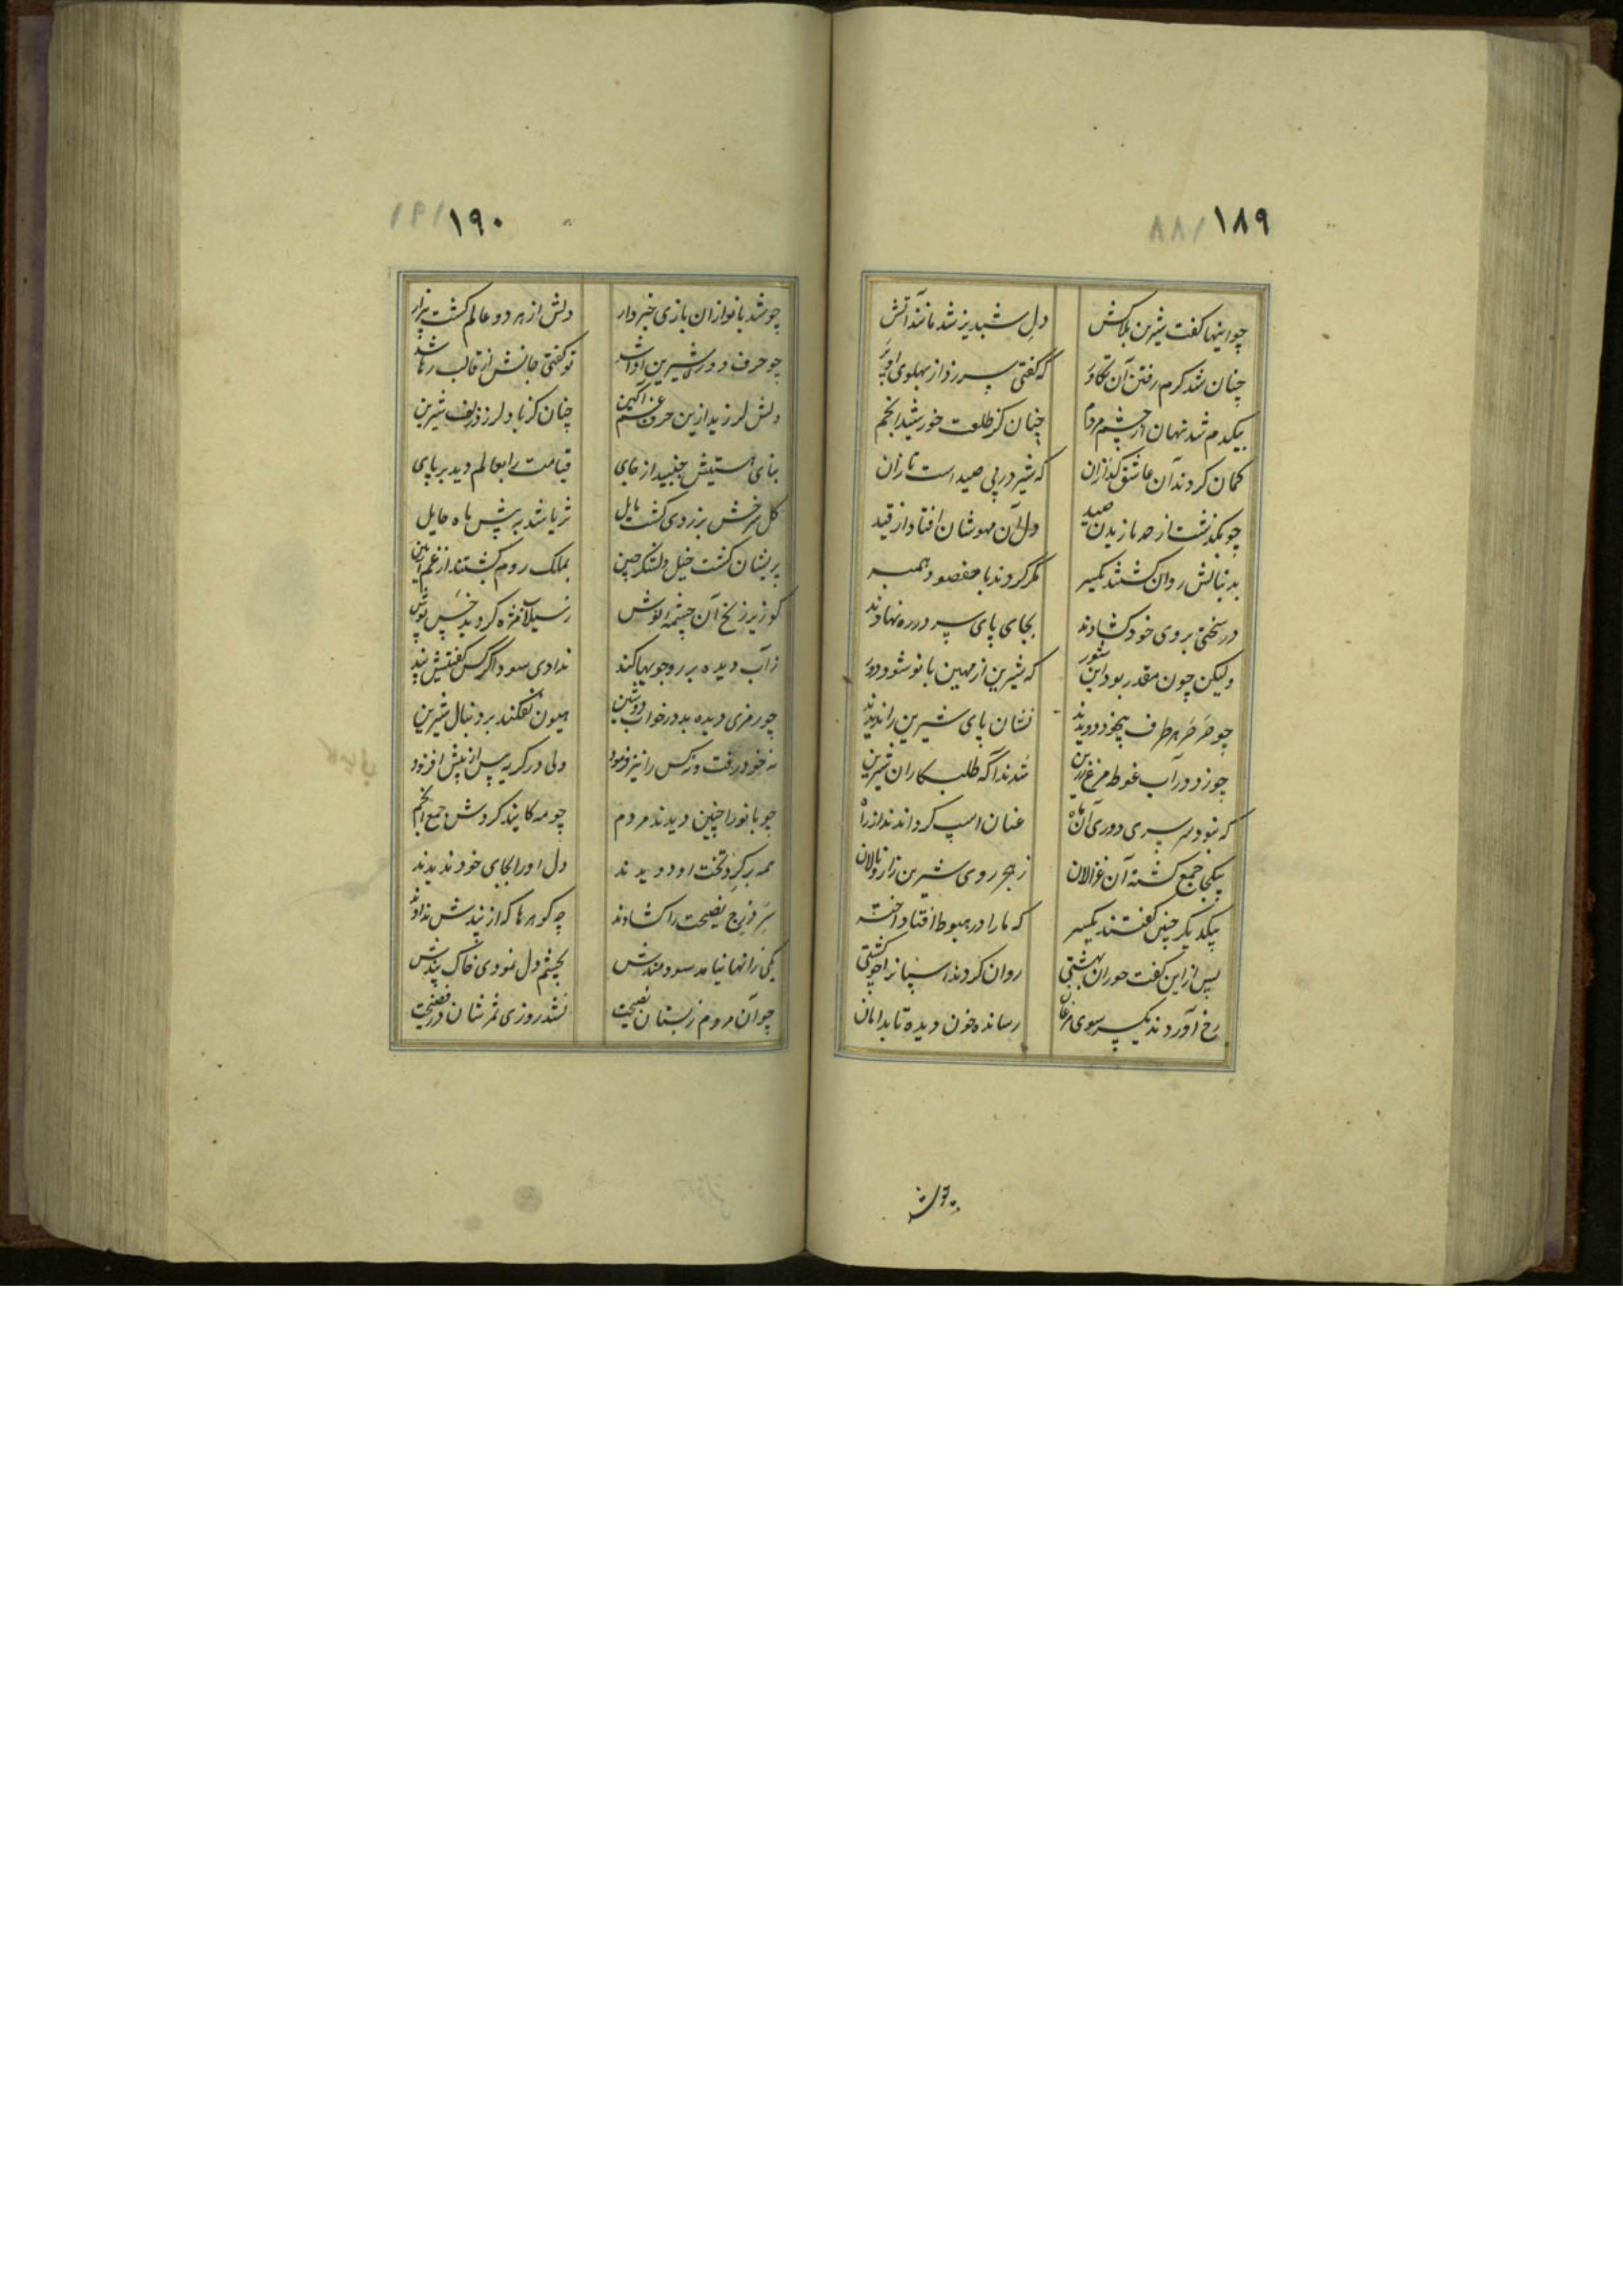 ۱۸۹ / ۸۸
چو اینها گفت شیرین بلاکش دل شبدیز شد مانند آتش
چنان شد گرم رفتن آن تکاور که گفتی سر زد از پهلوی او پر
بیکدم شد نهان از چشم مردم چنان کز طلعت خورشید انجم
گمان کردند آن عاشق گدازان که شیر در پی صید است تازان
چو بگذشت از حد بازیدن صید دل آن مهوشان افتاد از قید
بدنبالش روان گشتند یکسر مگر کردند با مقصود همبر
در سختی بروی خود گشادند بجای پای سر در ره نهادند
ولیکن چون مقدر بود این شور که شیرین از مهین بانو شود دور
چو صرصر هر طرف بیخود دویدند نشان پای شیرین را ندیدند
چو زد در آب غوطه مرغ زرین شدند آگه طلبکاران شیرین
که نبود سرسری دوری آن ماه عنان اسپ گرداندند از راه
بیکجا جمع گشته آن غزالان ز هجر روی شیرین زار و نالان
بیکدیگر چنین گفتند یکسر که ما را در هبوط افتاد اختر
پس از این گفت حوران بهشتی روان کردند اسپان را چو کشتی
رخ آوردند یکسر سوی رسانده خون دیده تا بدامان
۱۹۰ / ۱۹
چو شد بانو از ان بازی خبردار دلش از هر دو عالم گشت بیزار
چو حرف دوری شیرین ادا شد تو گفتی جانش از قالب رها شد
دلش لرزید ازین حرف غم آگین چنان کز باد لرزد زلف شیرین
بنای هستیش جنبید از جای قیامت را بعالم دید بر پای
گل سرخش بزردی گشت مایل ثریا شد به پیش ماه حایل
پریشان گشت خیل و لشکر چین بملک روم گشتند از غم آیین
گو زیر زنخ آن چشمه نوش ز سیلاب مژه گردید خس پوش
ز آب دیده بر رو جویها کند ندادی سود اگر کس گفتیش پند
چو رمزی دیده بد در خواب دوشین هیون نفکند بر دنبال شیرین
نه خود رفت و نه کس را نیز فرمود ولی در گریه پس از پیش افزود
چو بانو را چنین دیدند مردم چو مه کایند گردش جمع انجم
همه بر گرد تخت او دویدند دل او را بجای خود ندیدند
سر درج نصیحت را گشادند چه گوهرها که از پندش ندادند
یکی زانها نیامد سودمندش بچشم دل نمودی خاک پندش
چو آن مردم ز بستان نصیحت نشد روزی ثمرشان در فضیحت